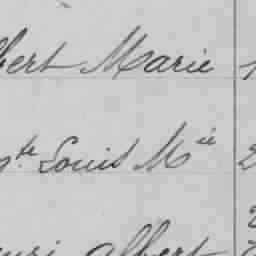 bert Marie 1
te Louis Mie 2
enri Albert